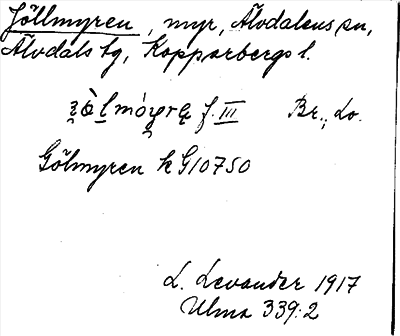 Jöllmyren, myr, Älvdalens sn,
Älvdals tg, Kopparbergs l.
f. III Br., Lo.
Gölmyren k G10750
L. Levander 1917
Ulma 339:2